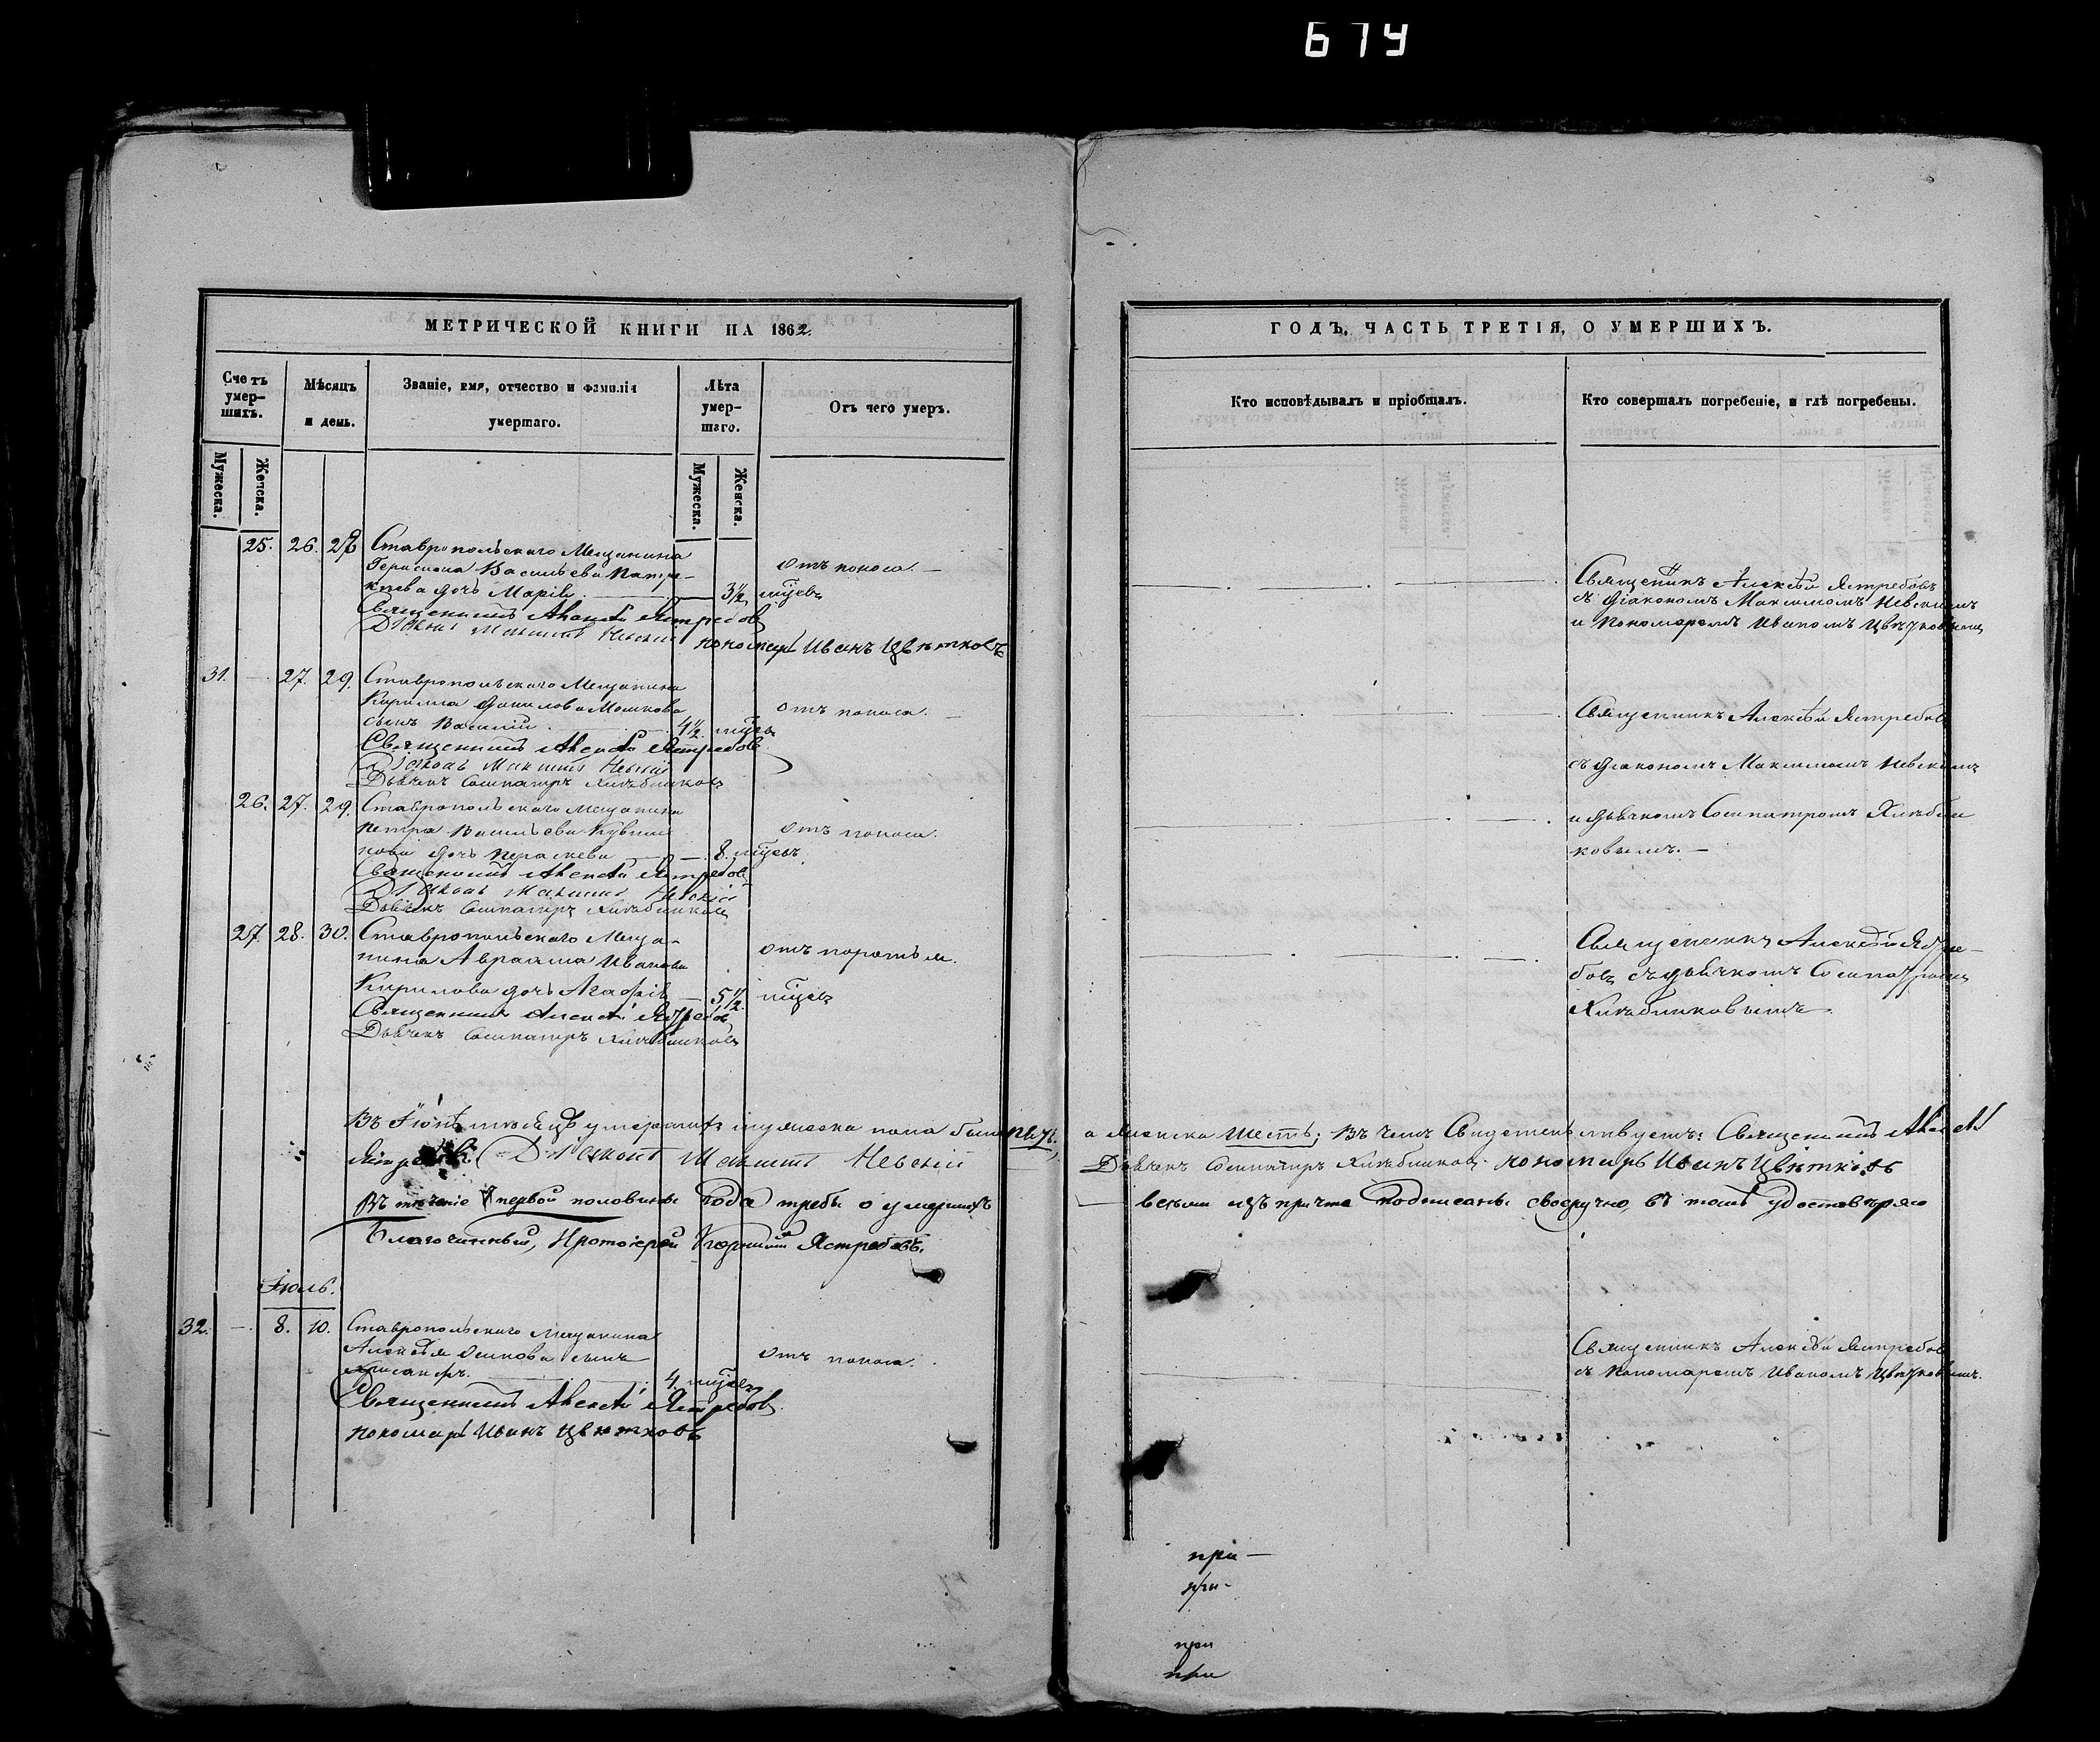 674
МЕТРИЧЕСКОЙ КНИГИ НА 1862.
Счетъ умер-шихъ.
Мѣсяцъ и день.
Званіе, имя, отчество и фамилія умершаго.
Лѣта умер-шаго.
Отъ чего умеръ.
Мужеска.
Женска.
Мужеска.
Женска.
25. 26. 28 Ставропольскаго Мещанина
Герасима Васильева
дочь Марія 3½ мѣсяцъ
отъ поноса.
Священникъ Алексѣй Ястребовъ
Діаконъ Максимъ Невскій
пономарь Иванъ Цвѣтковъ
31. 27. 29. Ставропольскаго Мещанина
Кирилла Данилова Мошкова
сынъ Василій 4½ мѣсяцъ
отъ поноса.
Священникъ Алексѣй Ястребовъ
Діаконъ Максимъ Невскій
Дьячекъ Сосипатръ Хлѣбниковъ
26. 27. 29. Ставропольскаго Мещанина
Петра Васильева Кувши
нова дочь Параскева 8. мѣсяцъ
отъ поноса.
Священникъ Алексѣй Ястребовъ
Діаконъ Максимъ Невскій
Дьячекъ Сосипатръ Хлѣбниковъ
27. 28. 30. Ставропольскаго Меща-
нина Авраама Иванова
Кирилова дочь Агафія 5½ мѣсяцъ
Священникъ Алексѣй Ястребовъ
Дьячекъ Сосипатръ Хлѣбниковъ
Въ Іюнѣ мѣсяцѣ умершихъ мужеска пола было
Ястребовъ Діаконъ Максимъ Невскій
Въ теченіе первой половины года требы о умершихъ
Благочинный, Протоіерей Ястребовъ.
Іюль.
32. 8. 10. Ставропольскаго Мещанина
Алексѣя Осипова сынъ
4 мѣсяцъ
отъ поноса.
Священникъ Алексѣй Ястребовъ
пономарь Иванъ Цвѣтковъ
ГОДЪ, ЧАСТЬ ТРЕТІЯ, О УМЕРШИХЪ.
Кто исповѣдывалъ и пріобщалъ.
Кто совершалъ погребеніе, и гдѣ погребены.
Священникъ Алексѣй Ястребовъ
съ діакономъ Максимомъ Невскимъ
и Пономаремъ Иваномъ Цвѣтковымъ
Священникъ Алексѣй Ястребовъ
съ діакономъ Максимомъ Невскимъ
и дьячкомъ Сосипатромъ Хлѣбни
ковымъ.
Священникъ Алексѣй Ястре-
бовъ съ дьячкомъ Сосипатромъ
Хлѣбниковымъ.
а женска шесть; въ чемъ Свидетельствуетъ: Священникъ Алексѣй
Дьячекъ Сосипатръ Хлѣбниковъ. пономарь Иванъ Цвѣтковъ
всѣми изъ причта подписаны своеручно, въ томъ удостовѣряю
Священникъ Алексѣй Ястребовъ
съ Пономаремъ Иваномъ Цвѣтковымъ.
при
при
при
при